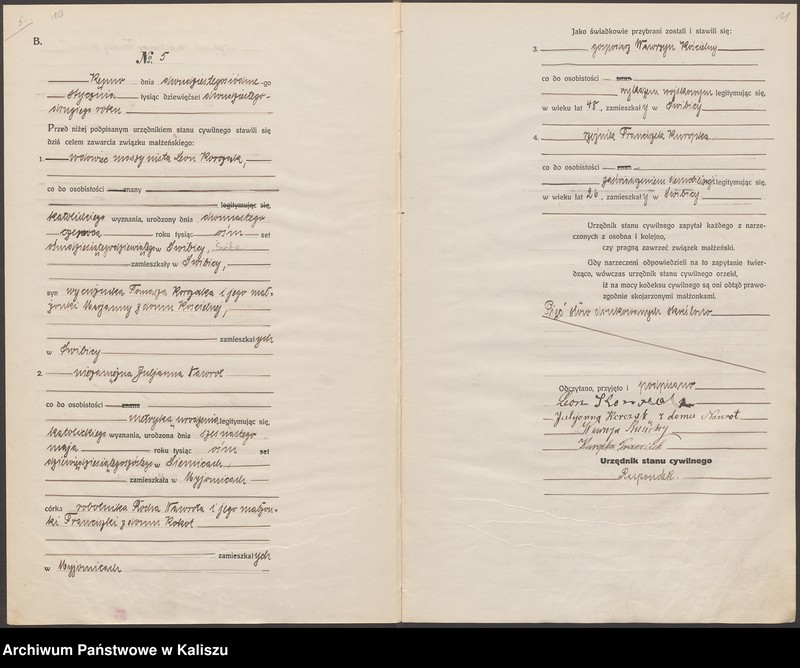 5.
10
B.
No 5
Kępno dnia dwudziestegosiódme-go
stycznia tysiąc dziewięćset dwudziestego-
drugiego roku
Przed niżej podpisanym urzędnikiem stanu cywilnego stawili się
dziś celem zawarcia związku małżeńskiego:
1. wdowiec Leon Korzałka,
co do osobistości znany
legitymując się,
katolickiego wyznania, urodzony dnia dwunastego
czerwca roku tysiąc ośm set
w Świbicy,
zamieszkały w Świbicy,
syn wycużnika Tomasza i jego mał-
żonki Marjanny z domu Kościelny,
zamieszkałych
w Świbicy
2. niezamężna Juljanna Nawrot
co do osobistości znana
metryką urodzenia legitymując się,
katolickiego wyznania, urodzona dnia szesnastego
maja roku tysiąc ośm set
w Siemicach,
zamieszkała w Myjomicach
córka robotnika Nawrota i jego małżon-
ki Franciszki z domu Kokot
zamieszkałych
w Myjomicach
11
Jako świadkowie przybrani zostali i stawili się:
3. gospodarz Wawrzyn Kościelny
co do osobistości znan
wykazem wojskowym legitymując się,
w wieku lat 48, zamieszkały w Świbicy
4. rzeźnik Franciszek Kuropka
co do osobistości znan
zaświadczeniem legitymując się,
w wieku lat 26, zamieszkały w Świbicy
Urzędnik stanu cywilnego zapytał każdego z narze-
czonych z osobna i kolejno,
czy pragną zawrzeć związek małżeński.
Gdy narzeczeni odpowiedzieli na to zapytanie twier-
dząco, wówczas urzędnik stanu cywilnego orzekł,
iż na mocy kodeksu cywilnego są oni odtąd prawo-
zgodnie skojarzonymi małżonkami.
Pięć słów drukowanych skreślono
Odczytano, przyjęto i podpisano
Leon
Juljanna Korczak z domu Nawrot.
Urzędnik stanu cywilnego
Respondek.
Archiwum Państwowe w Kaliszu